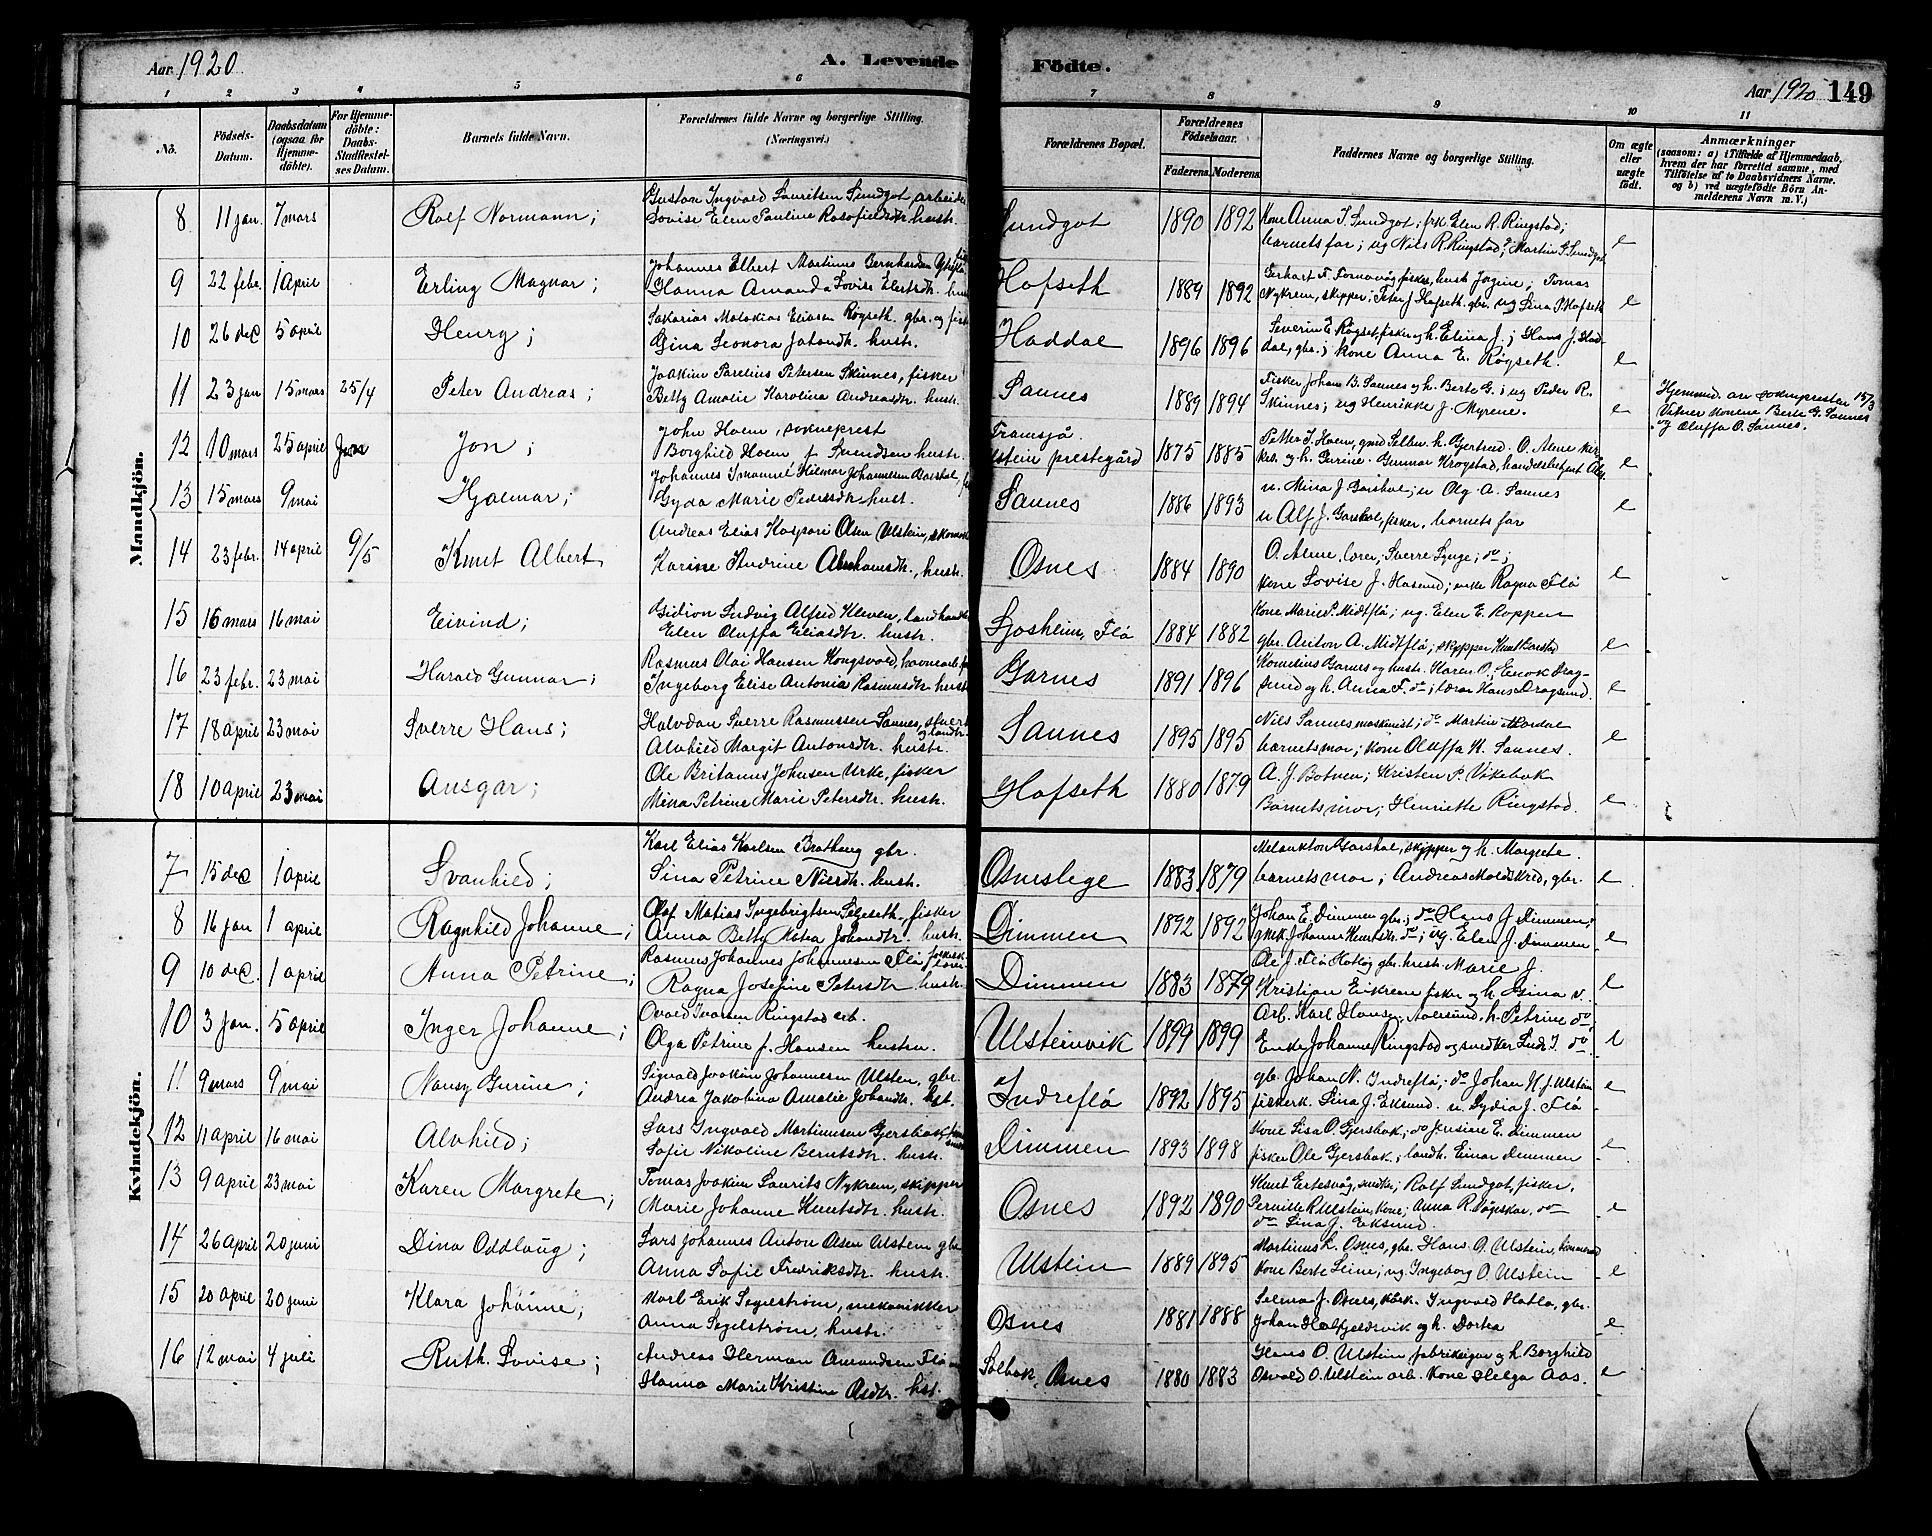 Aar 1920 A. Levende Födte. Aar 1920 149
1 2 3 4 5 6 7 8 9 10 11
No. Födsels-Datum. Daabsdatum (ogsaa for Hjemmedöbte). For Hjemmedöbte: Daabs-Stadfæstelses Datum. Barnets fulde Navn. Forældrenes fulde Navne og borgerlige Stilling. (Næringsvei.) Forældrenes Bopæl. Forældrenes Födselsaar. Faderens. Moderens. Faddernes Navne og borgerlige Stilling. Om ægte eller uægte födt. Anmærkninger (saasom: a) i Tilfælde af Hjemmedaab, hvem der har forrettet samme, med Tilföielse af to Daabsvidners Navne. og b) ved uægtefödte Börn Anmelderens Navn m.V.)
Mandkjön.
8 11 jan. 7 mars Rolf Normann; Gustav Ingvald Lauritsen Sundgot, arbeider Sundgot 1890 1892 Kone Anna I. Sundgot; frk. Elen R. Ringstad; e
Lovise Elen Pauline Rasofieldsdtr. hustr. barnets far; ug Nils R. Ringstad; Martin G. Sundgot
9 22 febr. 1 April Erling Magnar; Johannes Elbert Martinus Bernhardsen Hofseth 1889 1892 Gerhart F. Fornavåg fisker, hustr. Jørgine; Tomas e
Hanna Amanda Lovise Elertsdtr. Nykrem, skipper; Peter J Hofseth. gbr. ug Lina P Hofseth
10 26 dec 5 april Henry; Sakarias Malakias Eliasen Røgseth. gbr. og fisk Haddal 1896 1896 Severin E Røgset, fisker og h. Elina J.; Hans J. Had- e
Gina Leonora Johandtr. hustr. dal, gbr.; kone Anna E. Røgseth.
11 23 jan 15 mars 25/4 Peter Andreas; Joakim Parelius Petersen Skinnes, fisker Saunes 1889 1894 Fisker Johan B. Saunes og h. Berte G.; ug Peder R. e Hjemmed. av soknepresten 15/3
Betty Amalie Karolina Andreasdtr. hustr. Skinnes; ug Henrikke J. Myrene. Vitner konene Berte G. Saunes
og Oluffa O. Saunes.
12 10 mars 25 april Jon; John Hoem, sokneprest Ulstein prestegård 1875 1885 Petter I. Hoem, h. Gjertrud. O. Alme e
Borghild Hoem f. Svendsen hustr. og h. Gurine. Gunnar Krogstad, handelsbetjent
13 15 mars 9 mai Hjalmar; Johannes Imanuel Hilmar Johannesen Garshol Saunes 1886 1893 u. Mina J Garshol; u Olg. A. Saunes e
Gyda Marie Pedersdtr. hust. u Alf J. Garshol, fisker, barnets far
14 23 febr. 14 april 9/5 Knut Albert Andreas Elias Kaspari Olsen Ulstein, Osnes 1884 1890 O. Alme, lærer; Sverre Lynge; do; e
Karine Andrine Abrahamsdtr., hustr. Kone Lovise J. Hasund; enke Ragna Flø
15 16 mars 16 mai Eivind; Gidion Ludvig Alfred Kleven, landhandler Sjøsheim, Flø 1884 1882 Kone Marie P. Midtflø; ug. Elen E. Roppen e
Elen Oluffa Eliasdtr. hustr. gbr. Anton A. Midtflø; skipper Knut
16 23 febr. 23 mai Harald Gunnar; Rasmus Olai Hansen Kongsvold, havnearb. Garnes 1891 1896 Kornelius Garnes og hustr. Karen O.; Enok Drag- e
Ingeborg Elise Antonia Rasmusdtr. hustr sund og h. Anna T. do; lærer Hans Dragsund.
17 18 april 23 mai Sverre Hans; Halvdan Sverre Rasmussen Saunes, Saunes 1895 1895 Nils Saunes maskinist; do Martin Mardal e
Alvhild Margit Antonsdtr. hustr. barnets mor; kone Oluffa K. Saunes.
18 10 april 23 mai Ansgar; Ole Britanus Johnsen Urke, fisker Hofseth 1880 1879 A. J. Botnen; Kristen P. Vikebak e
Mina Petrine Marie Petersdtr. hustr. Barnets mor; Henriette Ringstad.
Kvindekjön.
7 15 dec 1 april Svanhild; Karl Elias Karlsen Brathaug gbr. Osneslege 1883 1879 Melankton Garshol, skipper og h. Margrete. e
Lina Petrine Nilsdtr. hustr. barnets mor; Andreas Moldskred, gbr.
8 16 jan 1 april Ragnhild Johanne; Olaf Matias Ingebrigtsen Segeseth, fisker Dimmen 1892 1892 Johan E. Dimmen gbr.; do Hans J Dimmen; e
Anna Betty Matea Johandtr. hustr. Johanne Knutsdtr. do; ug. Elen J. Dimmen
9 10 dec. 1 april Anna Petrine; Rasmus Johannes Johannesen Flø Dimmen 1883 1879 Ole J. Flø Hatlø gbr. hustr. Marie J. e
Ragna Josefine Petersdtr hustr. Kristian Eikrem fisker og h. Gina v.
10 3 jan. 5 april Inger Johanne; Ovald Ivarsen Ringstad arb. Ulsteinvik 1899 1899 Arb. Karl Hansen, Aversund, h. Petrine do e
Olga Petrine f. Hansen hustru. Enke Johanne Ringstad og snedker Ludv. I. do
11 9 mars 9 mai Nansy Gurine; Sigvald Joakim Johannesen Ulstein, gbr. Indreflø 1892 1895 gbr. Johan N. Indreflø; do Johan K. f. Ulstein e
Andrea Jakobina Amalie Johandtr. hst. fiskerk. Lina J. Eksund. u. Lydia J. Flø
12 11 april 16 mai Alvhild; Lars Ingvald Martinusen Gjersbak, Dimmen 1893 1898 Kone Lisa O. Gjersbak; do Jensine E. Dimmen e
Sofie Nikoline Berntsdtr. hustr. fisker Ole Gjersbak; landh. Einar Dimmen
13 9 april 23 mai Karen Margrete; Tomas Joakim Laurits Nykrem, skipper Osnes 1892 1890 Knut Ertesvåg, snedker; Rolf Sundgot, fisker, e
Marie Johanne Knutsdtr. hustr. Pernille R Ulstein, kone; Anna R. Vågeskar, do
do Lina J. Eksund.
14 26 april 20 juni Dina Oddlaug; Lars Johannes Anton Olsen Ulstein gbr Ulstein 1889 1895 Martinus L. Osnes, gbr. Hans O. Ulstein, tømmermd e
Anna Sofie Fredriksdtr. hustr. Kone Berte Leine; ug. Ingeborg O. Ulstein
15 20 april 20 juni Klara Johanne; Karl Erik Segelstrøm, mekanikker Osnes 1881 1888 Selma J. Osnes, Ingvald Hatlø, gbr. e
Anna Segelstrøm, hustr. Johan Hofgjeldsvik og h. Dortea
16 12 mai 4 juli Ruth Lovise; Andreas Herman Amundsen Flø Solbak, Osnes 1880 1883 Hans O. Ulstein fabrikeigar og h. Borghild e
Hanna Marie Kristine Olsdtr. hst. Osvald O. Ulstein arb. Kone Helga Aas.